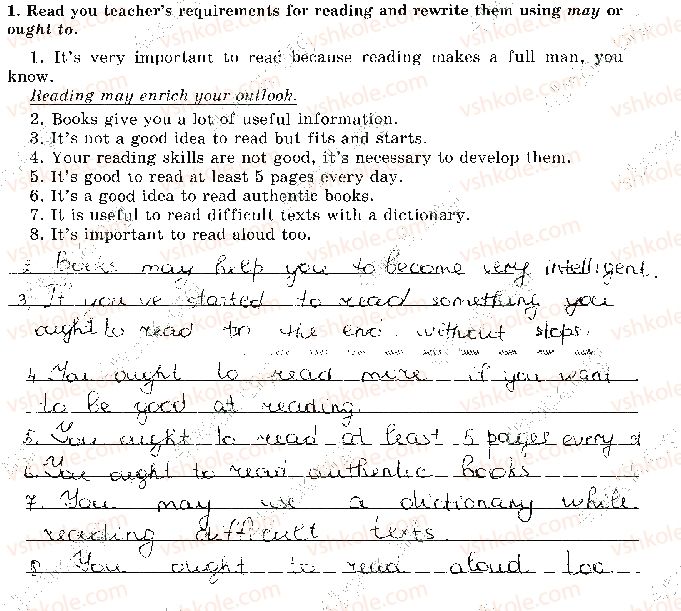 1. Read you teacher's requirements for reading and rewrite them using may or
ought to.
1. It's very important to read because reading makes a full man, you
know.
Reading may enrich your outlook.
2. Books give you a lot of useful information.
3. It's not a good idea to read but fits and starts.
4. Your reading skills are not good, it's necessary to develop them.
5. It's good to read at least 5 pages every day.
6. It's a good idea to read authentic books.
7. It is useful to read difficult texts with a dictionary.
8. It's important to read aloud too.
2 Books may help you to become very intelligent.
3. If you 've started to read something you
ought to read to the end without stops.
4 You ought to read more if you want
to be good at reading.
5. You ought to read at least 5 pages every d
6. You ought to read authentic books
7. You may use a dictionary while
reading difficult texts.
8 You ought to read aloud too